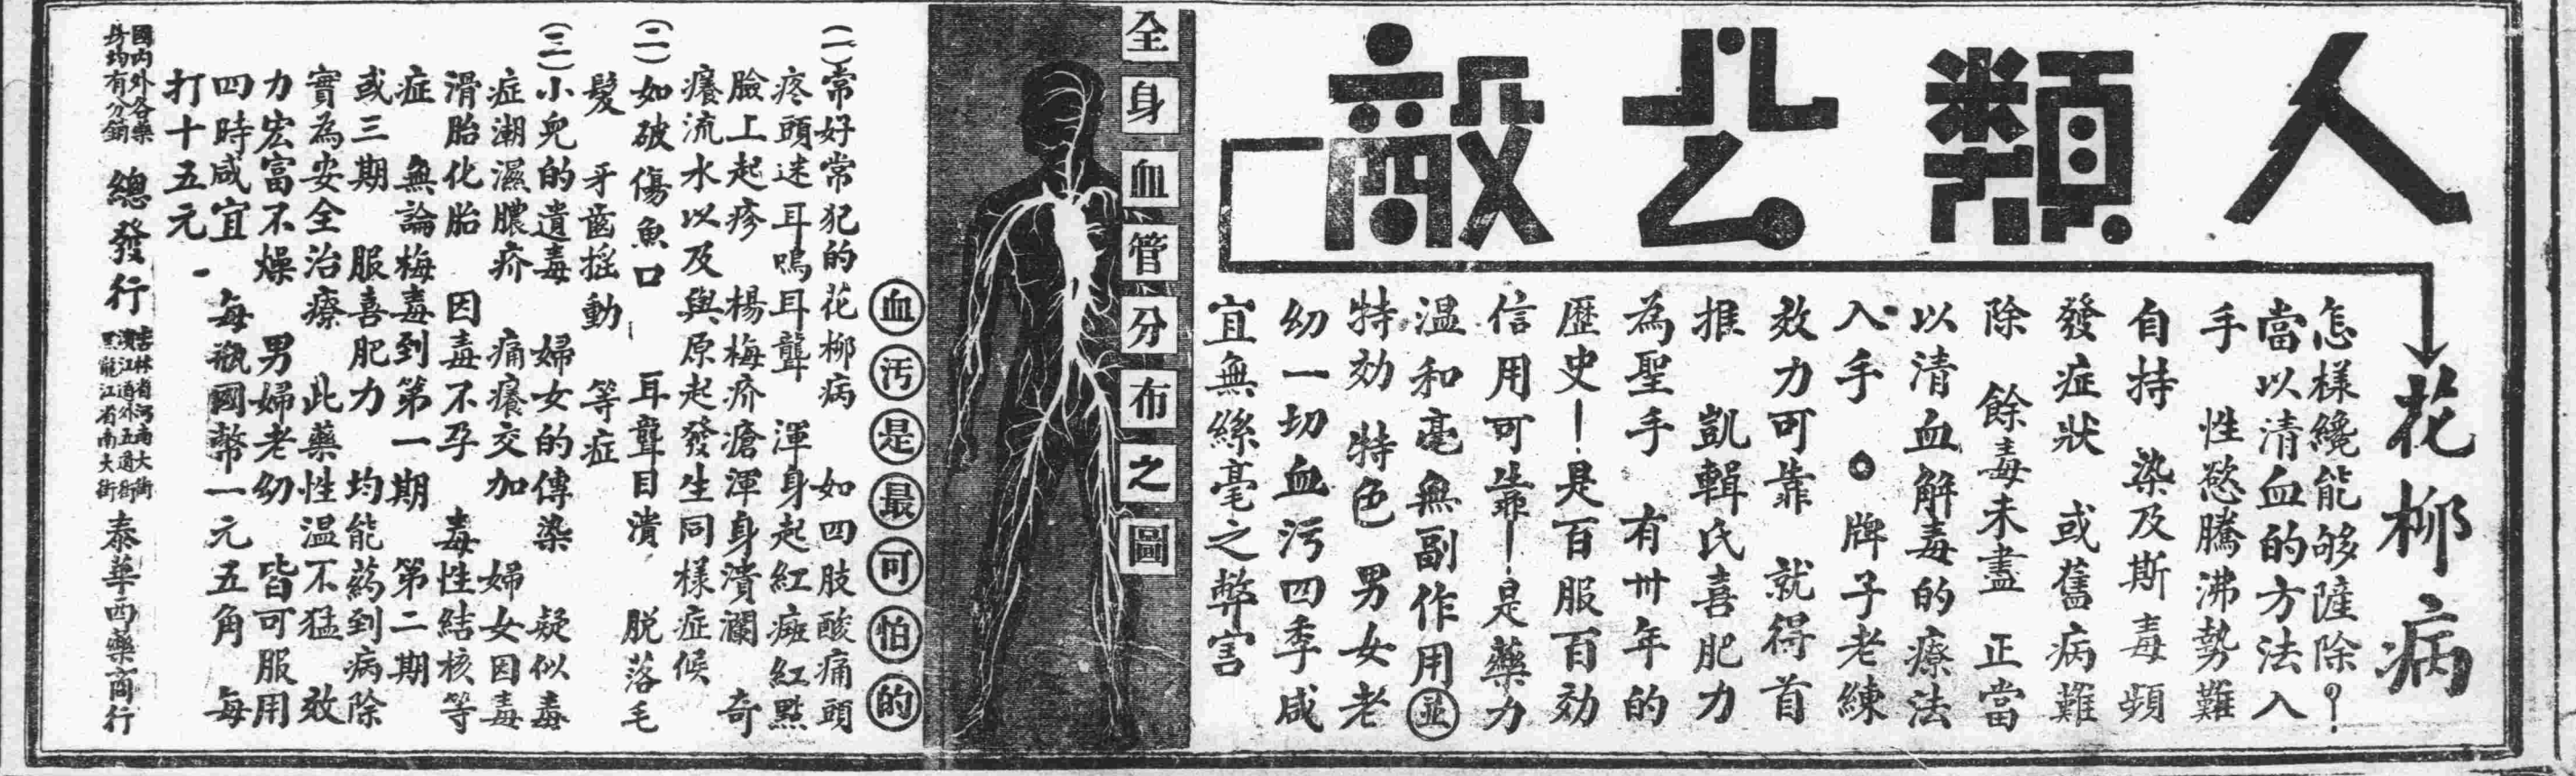 人類公敵
花柳病
怎樣纔能够薩除？
當以清血的方法入
手　性慾騰沸勢難
自持　染及斯毒頻
發症狀　或舊病難
除　餘毒未盡　正當
以清血解毒的療法
入手。牌子老練
效力可靠　就得首
推　凱輯氏喜肥力
為聖手　有卅年的
歷史—是百服百効
信用可靠—是藥力
溫和毫無副作用並
特効特色男女老
幼一切血污四季咸
宜無絲毫之弊害
全身血管分布之圖
血污是最可怕的
(一)常好常犯的花柳病　如四肢酸痛頭
疼頭迷耳鳴耳聾　渾身起紅癍紅點
臉上起疹　楊梅疥瘡渾身潰瀾　奇
癢流水以及與原起發生同樣症候
(二)如破傷魚口　耳聾目潰　脱落毛
髮　牙齒摇動　等症
(三)小兒的遺毒　婦女的傳染　疑似毒
症潮濕膿疥　痛癢交加　婦女因毒
滑胎化胎　因毒不孕　毒性結核等
症　無論梅毒到第一期　第二期
或三期　服喜肥力　均能葯到病除
實為安全治療　此藥性温不猛　效
力宏富不燥　男婦老幼　皆可服用
四時咸宜　每瓶國幣一元五角　每
打十五元
國内外各藥
身均有分銷
總發行
吉林省河南大街
濱江道外五道街
黑龍江省南大街
泰華西藥商行